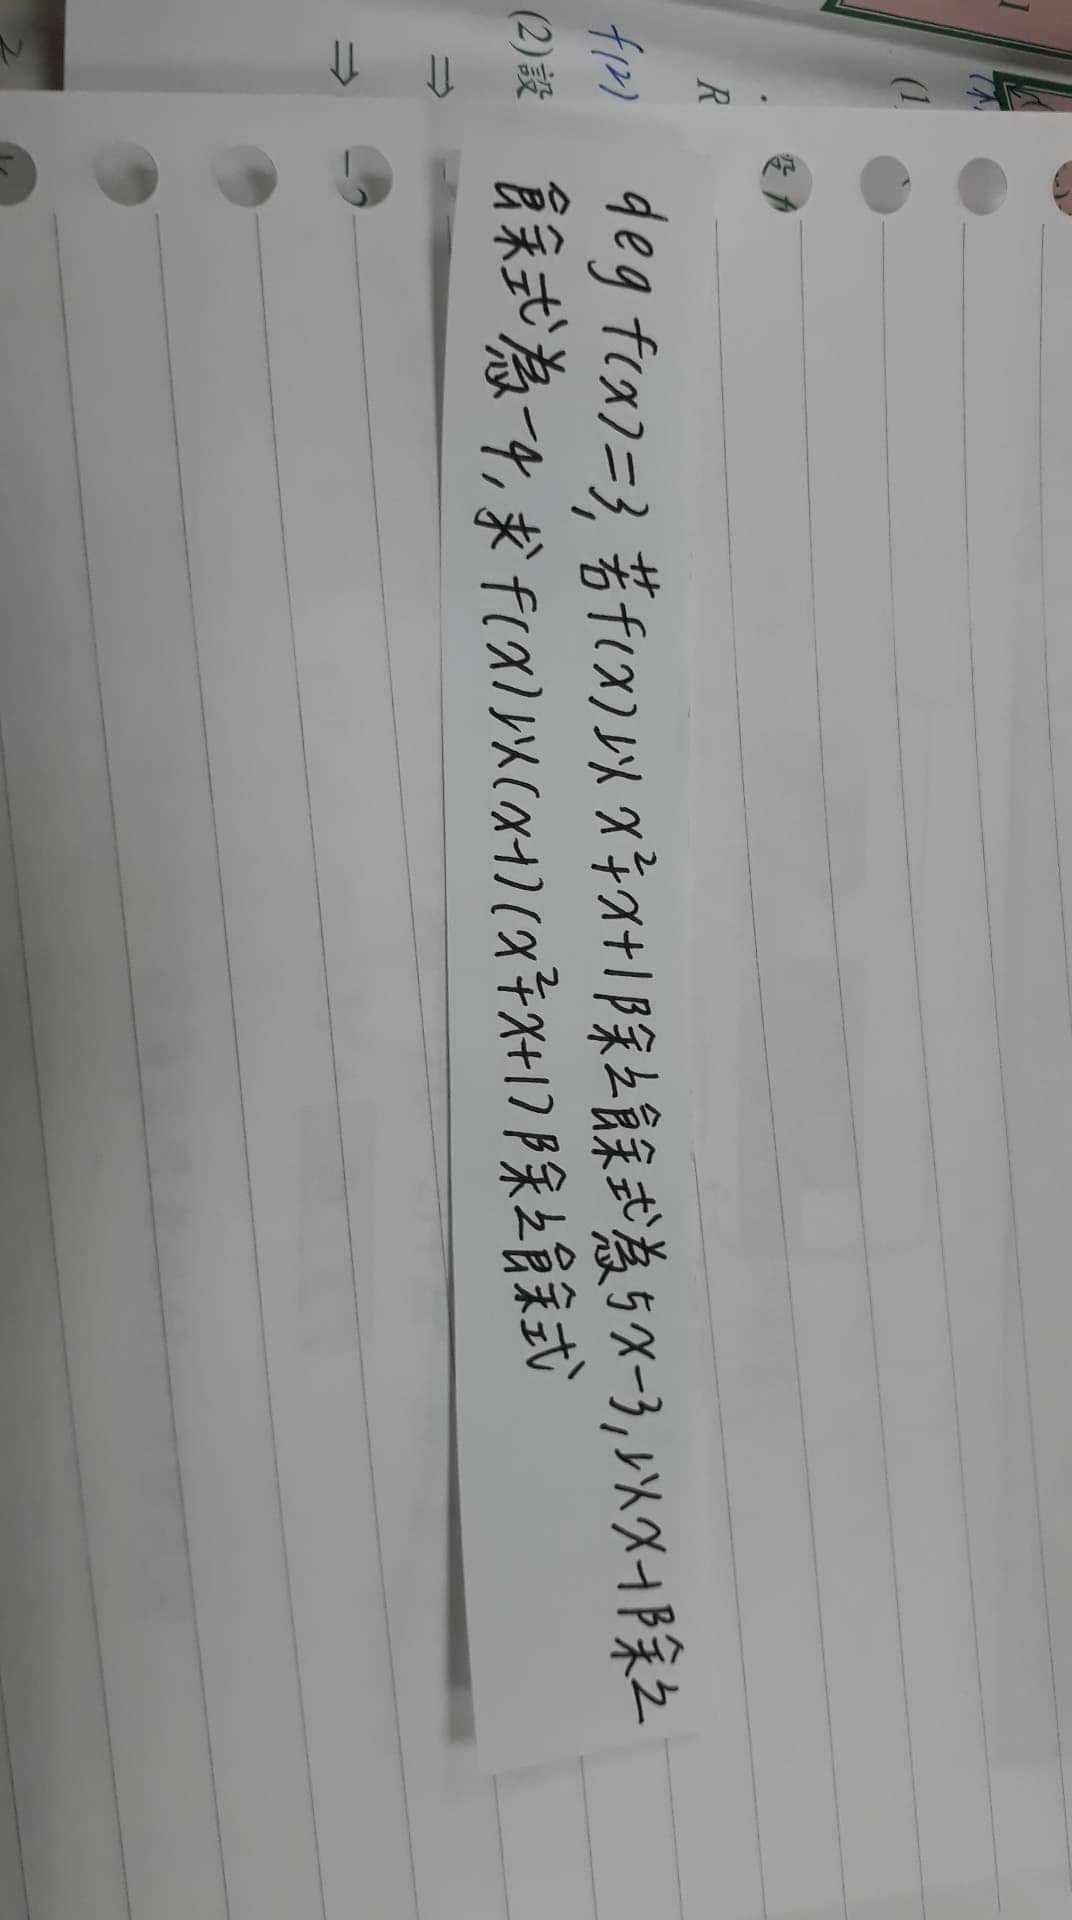 deg f(x)=3, 若f(x)以 x²+x+1除之餘式為5x-3, 以x-1除之
餘式為-4, 求 f(x)以(x-1)(x²+x+1)除之餘式
f(x)
(2)設
⇒
⇒
R
(1